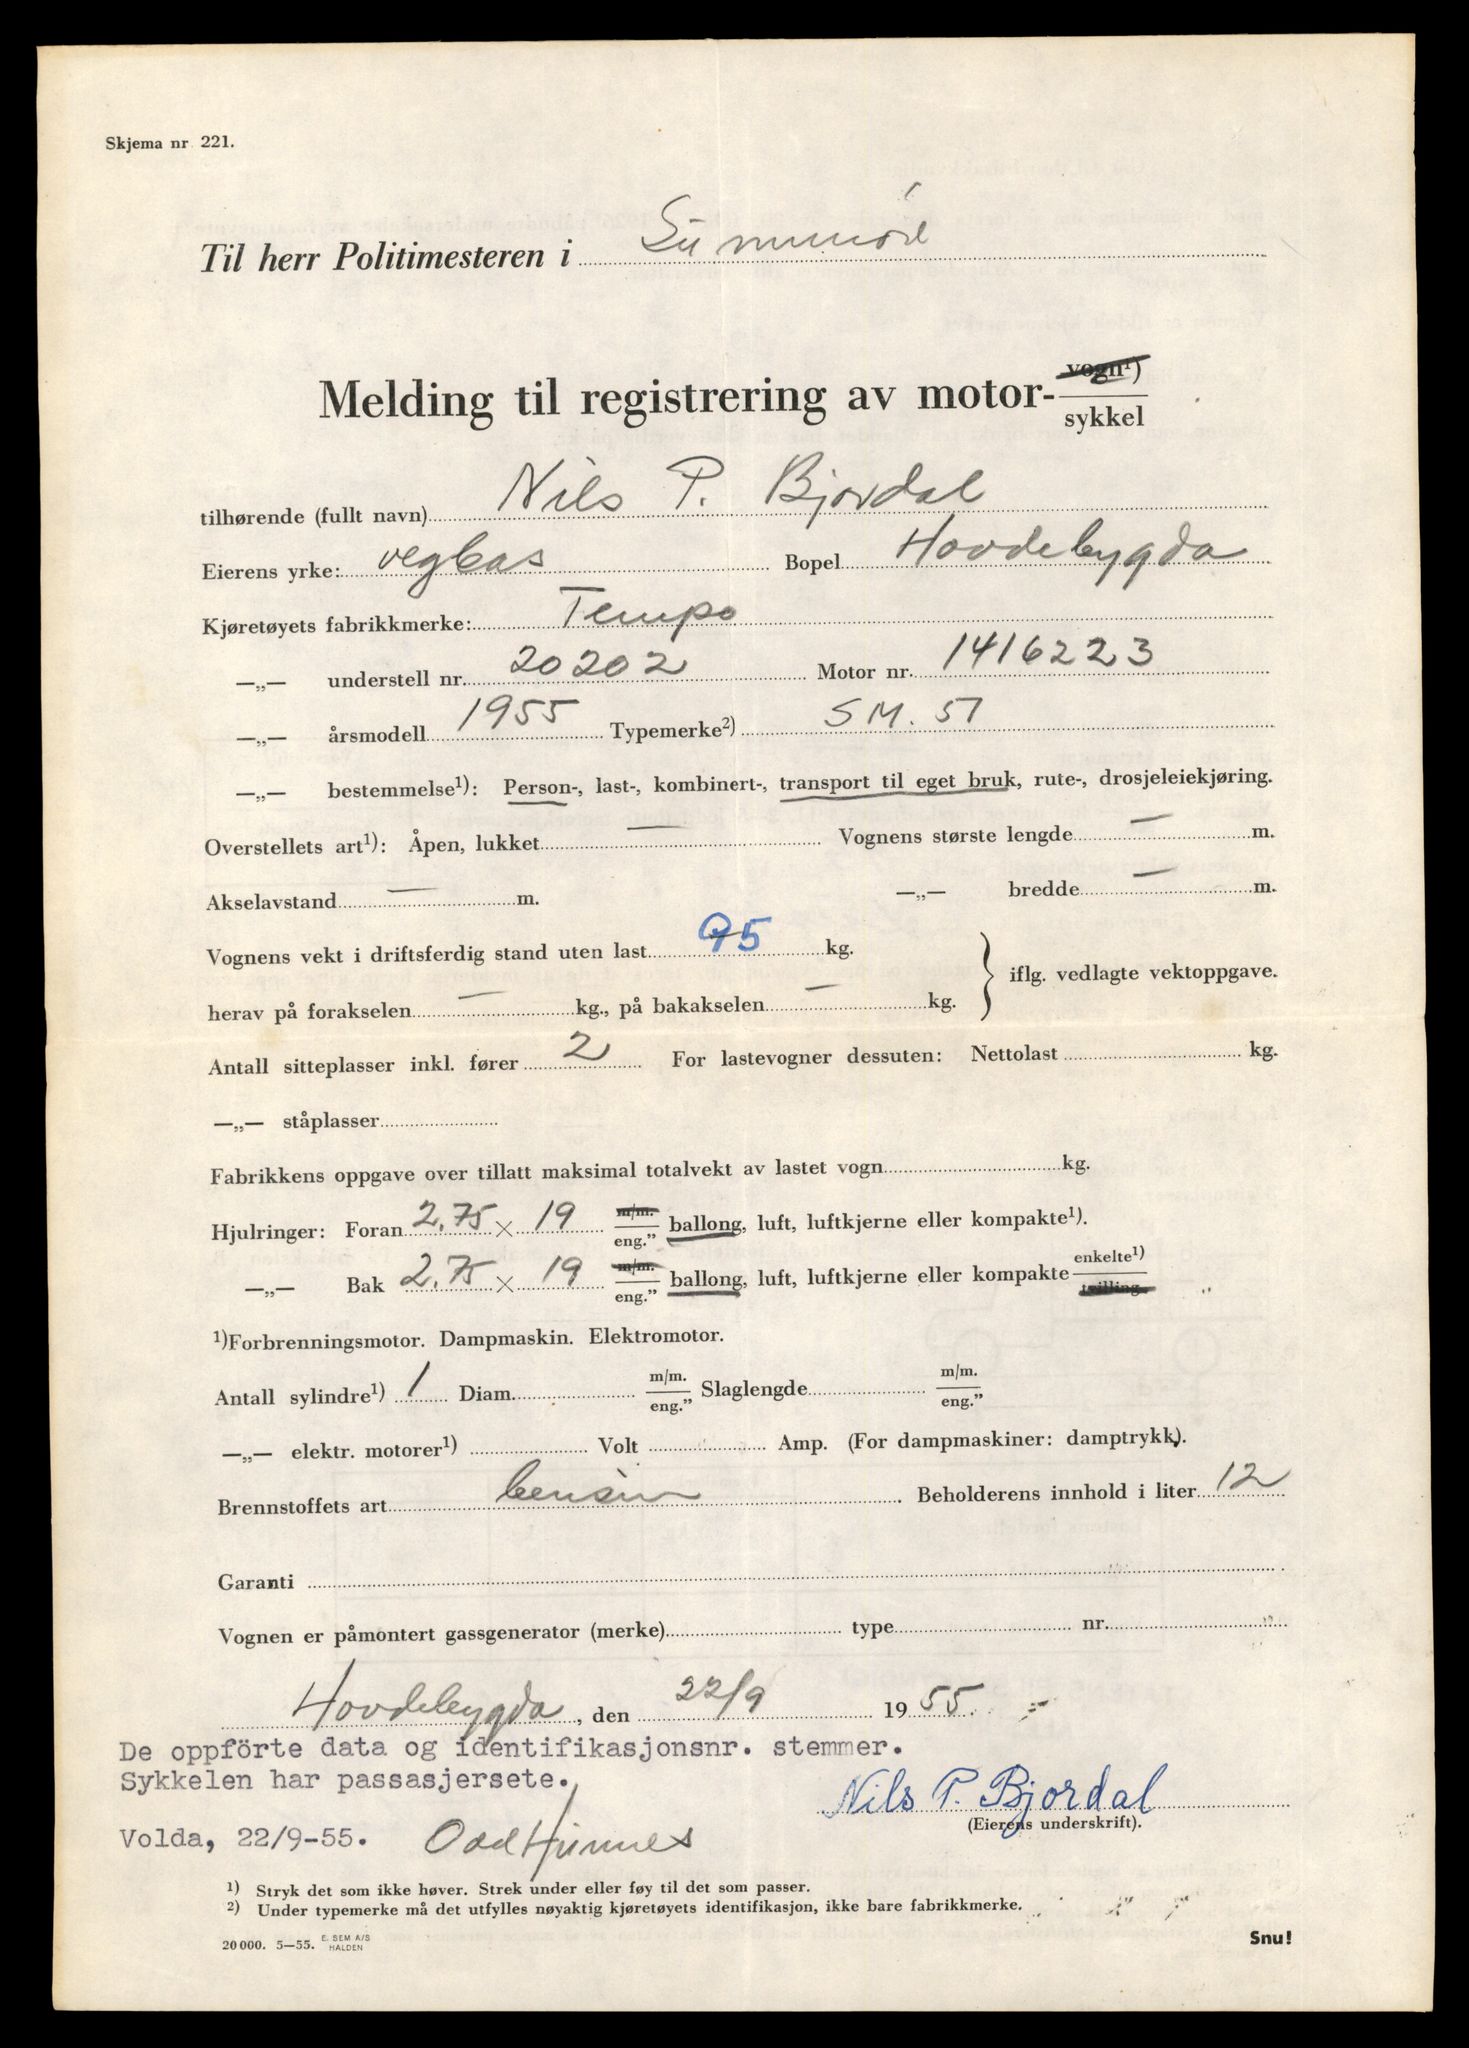 Skjema nr 221.
Til herr Politimesteren i Sunnmøre
Melding til registrering av motor- vogn¹)
sykkel
tilhørende (fullt navn) Nils P. Bjordal
Eierens yrke: vegbas Bopel Hovdebygda
Kjøretøyets fabrikkmerke: Tempo
—„— understell nr. 20202 Motor nr. 1416223
—„— årsmodell 1955 Typemerke²) SM. 51
—„— bestemmelse¹): Person-, last-, kombinert-, transport til eget bruk, rute-, drosjeleiekjøring.
Overstellets art¹): Åpen, lukket — Vognens største lengde — m.
Akselavstand — m. —„— bredde — m.
Vognens vekt i driftsferdig stand uten last 95 kg.
iflg. vedlagte vektoppgave.
herav på forakselen — kg., på bakakselen — kg.
Antall sitteplasser inkl. fører 2 For lastevogner dessuten: Nettolast kg.
—„— ståplasser
Fabrikkens oppgave over tillatt maksimal totalvekt av lastet vogn kg.
Hjulringer: Foran 2.75 × 19 m/m. eng.” ballong, luft, luftkjerne eller kompakte¹).
—„— Bak 2.75 × 19 m/m. eng.” ballong, luft, luftkjerne eller kompakte enkelte¹) tvilling.
¹)Forbrenningsmotor. Dampmaskin. Elektromotor.
Antall sylindre¹) 1 Diam. m/m. eng.” Slaglengde m/m. eng.”
—„— elektr. motorer¹) Volt Amp. (For dampmaskiner: damptrykk).
Brennstoffets art bensin Beholderens innhold i liter 12
Garanti
Vognen er påmontert gassgenerator (merke) type nr.
Hovdebygda, den 22/9 1955.
De oppförte data og identifikasjonsnr. stemmer.
Sykkelen har passasjersete.
Nils P. Bjordal
(Eierens underskrift).
Volda, 22/9-55. Odd Hunnes
¹) Stryk det som ikke høver. Strek under eller føy til det som passer.
²) Under typemerke må det utfylles nøyaktig kjøretøyets identifikasjon, ikke bare fabrikkmerke.
20000. 5—55. E. SEM A/S HALDEN
Snu!